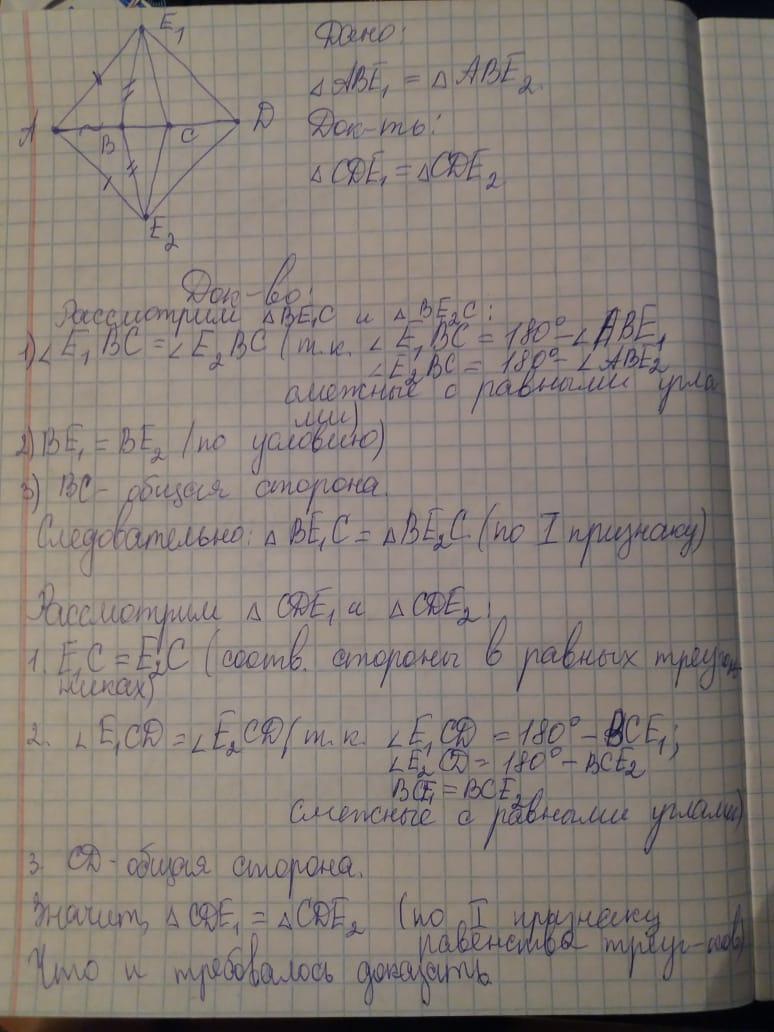 E₁
Дано:
△ABE₁ = △ABE₂.
A B C D
Док-ть:
△CDE₁ = △CDE₂
E₂
Док-во:
Рассмотрим △BE₁C и △BE₂C:
1) ∠E₁BC = ∠E₂BC (т.к. ∠E₁BC = 180° - ∠ABE₁
∠E₂BC = 180° - ∠ABE₂
смежные с равными угла
ми)
2) BE₁ = BE₂ (по условию)
3) BC - общая сторона.
Следовательно: △BE₁C = △BE₂C. (по I признаку)
Рассмотрим △CDE₁ и △CDE₂:
1. E₁C = E₂C (соотв. стороны в равных треугол
никах)
2. ∠E₁CD = ∠E₂CD (т.к. ∠E₁CD = 180° - BCE₁;
∠E₂CD = 180° - BCE₂
BCE₁ = BCE₂
смежные с равными углами)
3. CD - общая сторона.
Значит, △CDE₁ = △CDE₂ (по I признаку
равенства треуг-ков)
Что и требовалось доказать.